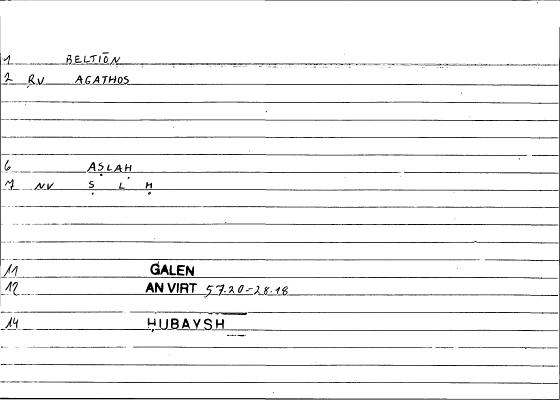 1 BELTIŌN
2 RV AGATHOS
6 AṢLAḤ
7 NV Ṣ L Ḥ
11 GALEN
12 AN VIRT 57.20-28.18
14 ḤUBAYSH